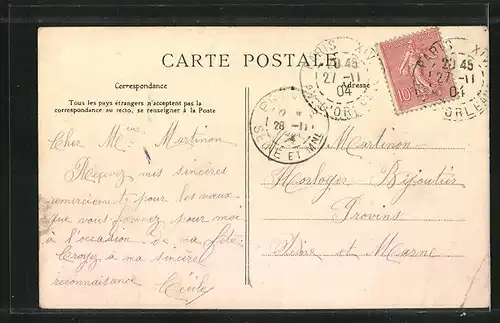 CARTE POSTALE
Correspondance
Adresse
Tous les pays étrangers n'acceptent pas la
correspondance au recto, se renseigner à la Poste
PARIS XIV
20 45
27 -11
04
AV. D'ORLEANS
PARIS
20 45
27 -11
04
ORLEANS
10
28 -11
SEINE ET MNE
Cher Mr Martinon
Recevez mes sincères
remerciements pour les vœux
que vous formez pour moi
à l'occasion de ma fête
Croyez à ma sincère
reconnaissance Cécile
Martinon
Horloger Bijoutier
Provins
Seine et Marne